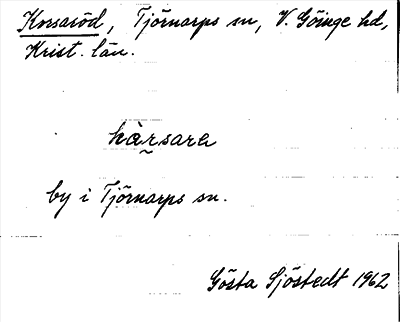 Korsaröd, Tjörnarps sn, V. Göinge hd,
Krist. län.
hàrsara
by i Tjörnarps sn.
Gösta Sjöstedt 1962